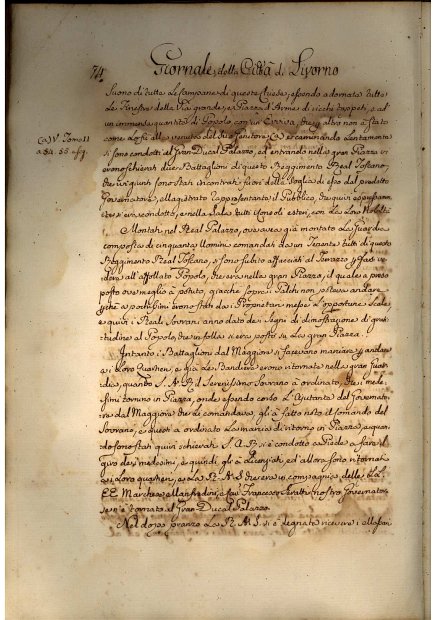 74 Giornale della Città di Livorno
Suono di tutte Le Campane di queste Chiese, essendo adornate tutte
Le Finestre della Via grande, e Piazza d'Arme di ricchi tappeti, e ad
un immensa quantità di Popolo, con un Evviva, che
come Lo fù alla venuta del Suo Genitore (a) e caminando Lentamente
(a) V. Tomo II
a 54. 55. e seg.
si sono condotti al Gran Ducal Palazzo, ed entrando nella gran Piazza vi
erono schierati due Battaglioni di questo Reggimento Real Toscano,
che quivi sono stati incontrati fuori della Soglia di esso dal predetto
Governatore, e Magistrato rappresentante il Pubblico, che quivi
erasi condotto, e nella Sala tutti i Consoli esteri, con La Loro Nobiltà
Montati nel Real Palazzo, ove avea già montato La Guardia
composta di cinquanta Uomini comandati da un Tenente tutti di questo
Reggimento Real Toscano, si sono subito affacciati al Terrazzo
all'affollato Popolo, che era nella gran Piazza, il quale
posto ove meglio à potuto, giacchè sopra i Palchi non poteva andare
erono state dai Proprietari messe L'opportune Scale
e quivi i Reali Sovrani anno dato dei Segni di dimostrazione di gra-
titudine al Popolo, che in folla si era posto su La gran Piazza.
Intanto i Battaglioni dal Maggiore si facevano maniare, p andare
a i Loro Quartieri, e già Le Bandiere erono ritornate nella gran Guar-
dia, quando S. A. R. il Serenissimo Sovrano à ordinato, che i mede-
simi tornino in Piazza, onde essendo corso L'Ajutante del Governato-
re dal Maggiore che Le comandava, gli à fatto noto il comando del
Sovrano, e questi à ordinato La marcia di ritorno in Piazza, e quan-
do sono stati quivi schierati S. A. R. si è condotto a Piede a fare il
giro dei medesimi, e quindi gli à Licenziati, ed allora sono ritornati
a i Loro quartieri, e La R. A. S. che era in compagnia delle LL.
EE. Marchese Manfredini, e Sig. Francesco Seratti nostro Governatore
se n'è tornato al Gran Ducal Palazzo.
Nel dopo pranzo La R. A. S. si è degnata ricevere i